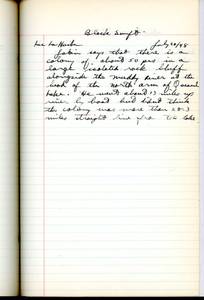 Black Swift
July 20/48
says that there is a
colony of about 50 prs in a
large isolated rock bluff
alongside the muddy river at the
head of the north arm of
Lake. He went about 13 miles up
river by boat but didn't think
the colony was more than 2 or 3
miles straight line from the lake